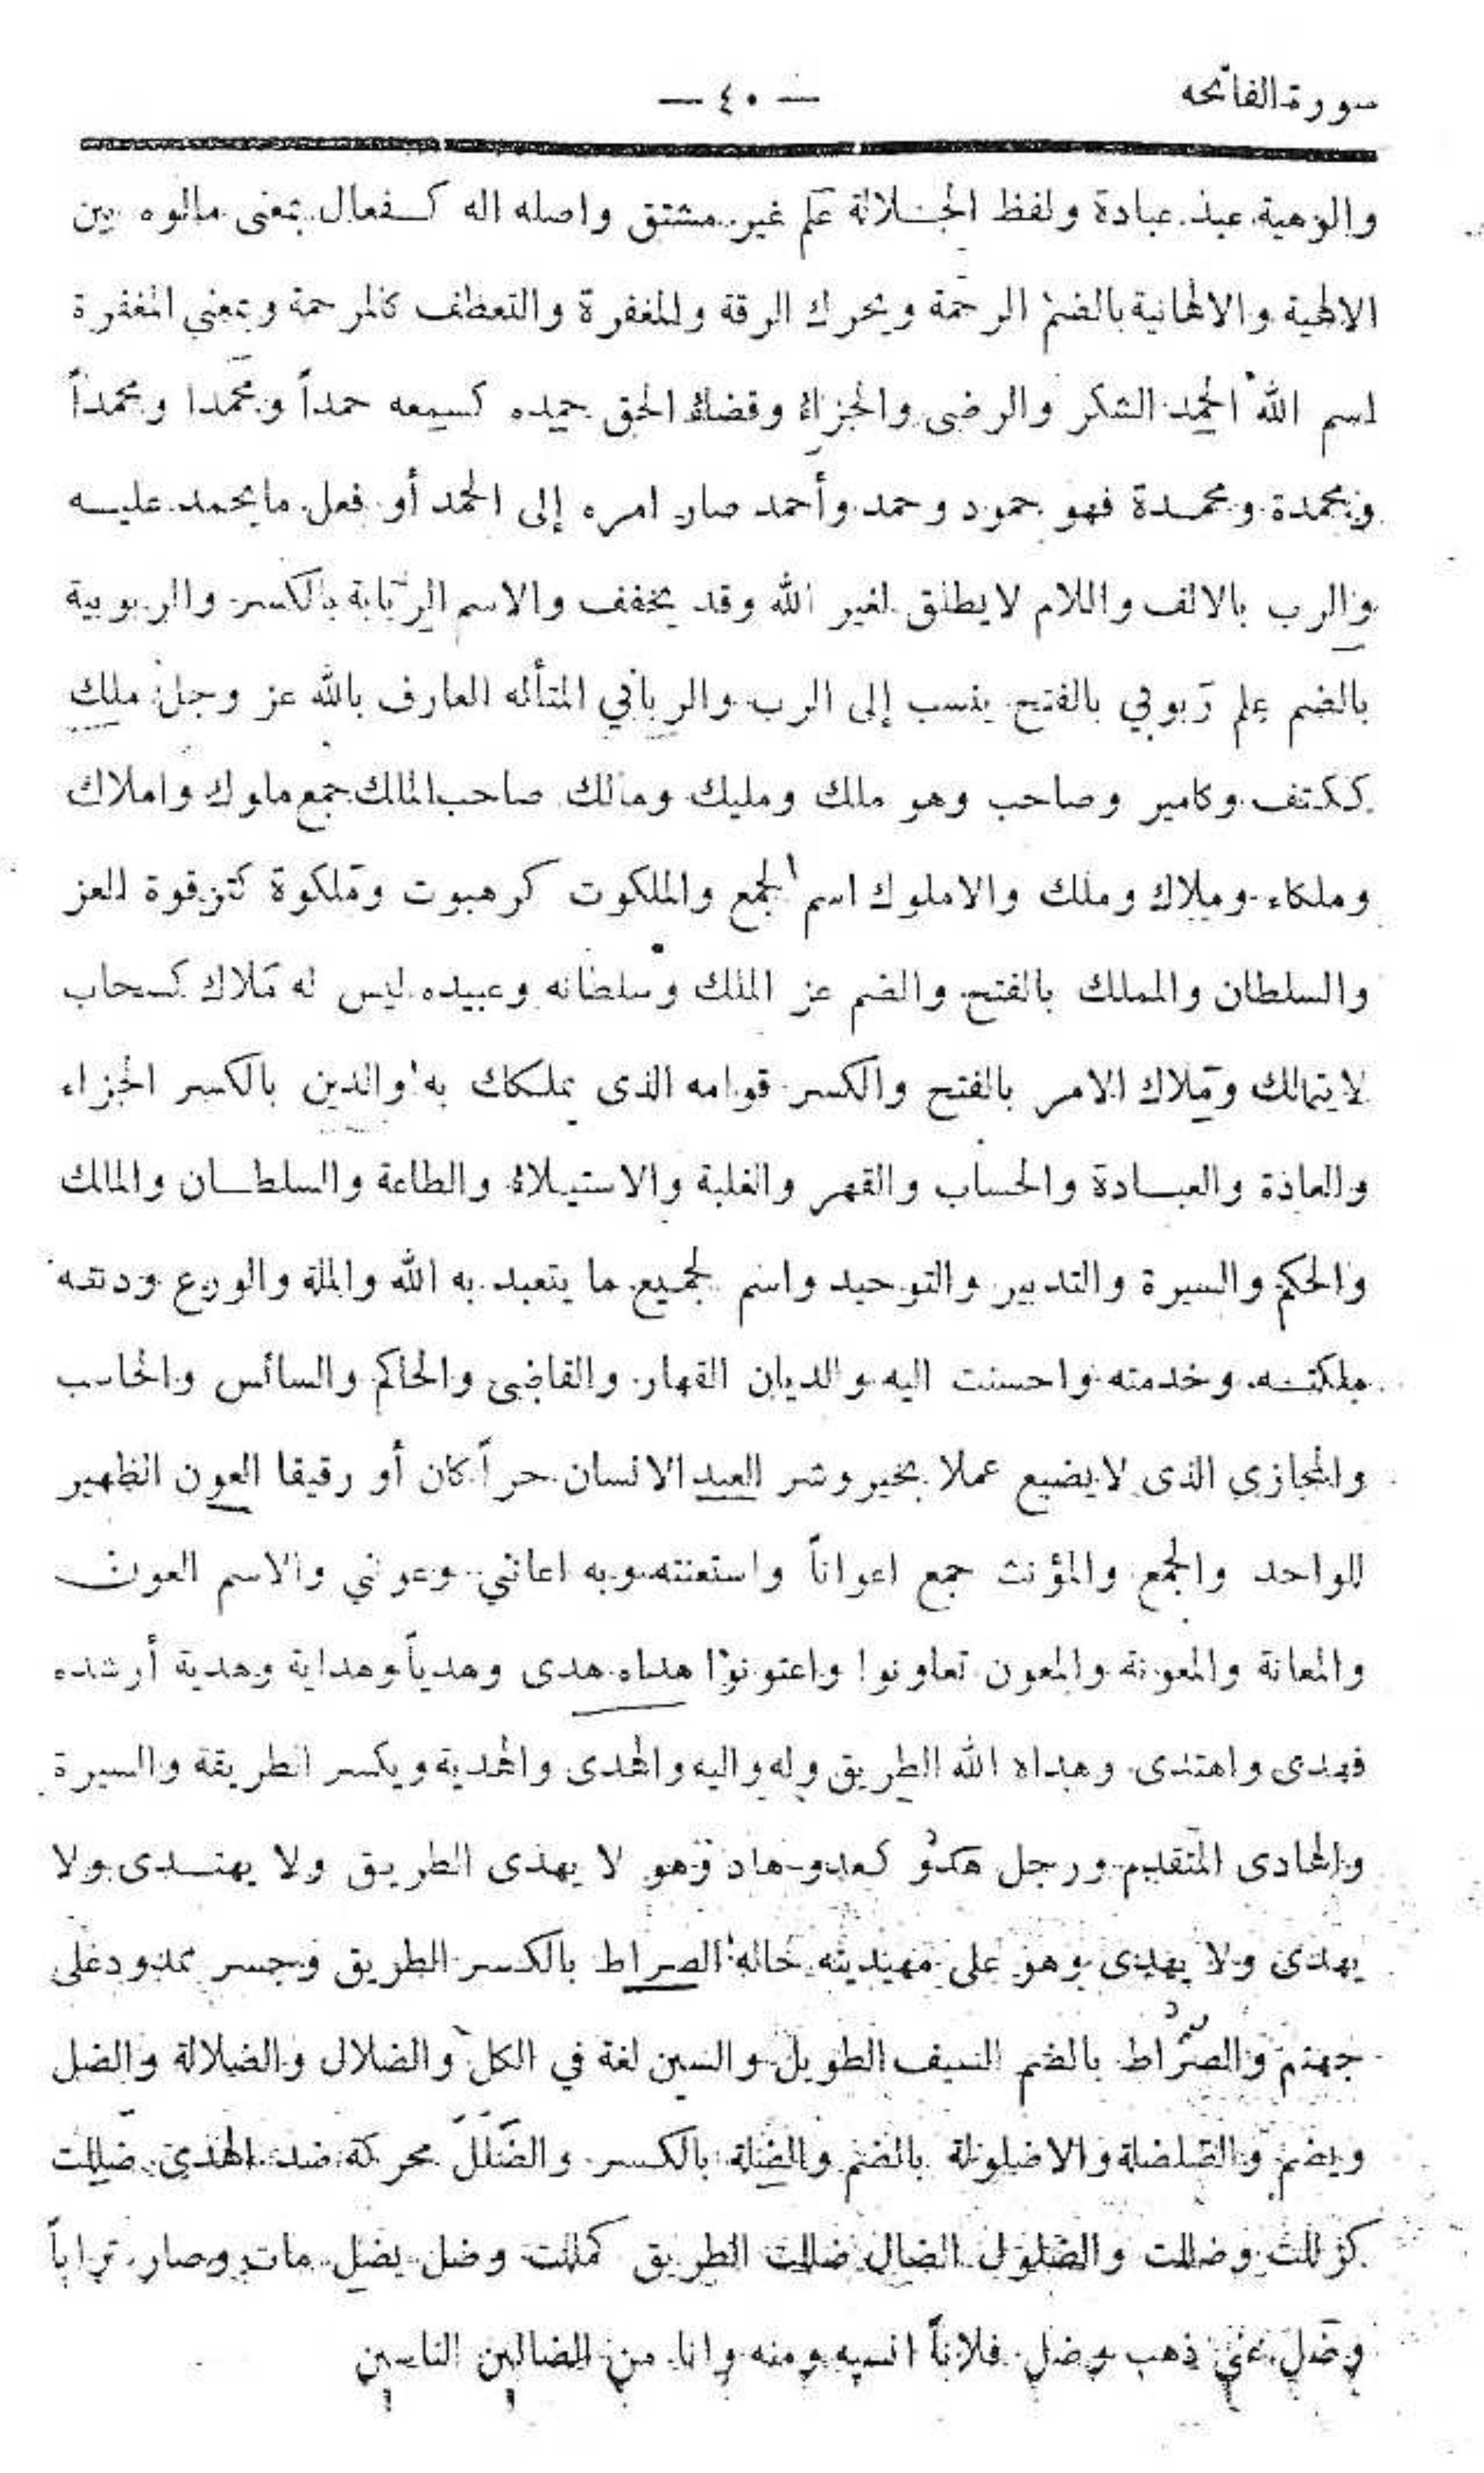 سورة الفاتحه
— ٤٠ —
والوهية عبد عبادة ولفظ الجلالة عَلَم غير مشتق واصله اله كفعال بمعنى مالوه بين
الالهية والالهانية بالضم الرحمة ويحرك الرقة والمغفرة والتعطف كالمرحمة وبمعنى المغفرة
اسم الله الحمد الشكر والرضى والجزاء وقضاء الحق حمده كسمعه حمداً ومحمدا ومحمداً
ومحمدة ومحمدة فهو حمود وحمد وأحمد صار امره إلى الحمد أو فعل ما يحمد عليه
والرب بالالف واللام لا يطلق لغير الله وقد يخفف والاسم الرِّبابة بالكسر والربوبية
بالضم علم رَبوبي بالفتح ينسب إلى الرب والرباني المتأله العارف بالله عز وجل ملك
ككتف وكامير وصاحب وهو ملك ومليك ومالك صاحب المالك جمع ملوك واملاك
وملكاء وملاك وملك والاملوك اسم الجمع والملكوت كرهبوت ومَلكوة كترقوة العز
والسلطان والمملك بالفتح والضم عز الملك وسلطانه وعبيده ليس له مَلاك كسحاب
لا يتمالك ومَلاك الامر بالفتح والكسر قوامه الذى يملكك به والدين بالكسر الجزاء
والعادة والعبادة والحساب والقهر والغلبة والاستيلاء والطاعة والسلطان والمالك
والحكم والسيرة والتدبير والتوحيد واسم لجميع ما يتعبد به الله والملة والورع ودنته
ملكته وخدمته واحسنت اليه والديان القهار والقاضى والحاكم والسائس والحاسب
والمجازي الذى لا يضيع عملا بخير وشر العبد الانسان حراً كان أو رقيقا العون الظهير
للواحد والجمع والمؤنث جمع اعواناً واستعنته وبه اعانني وعونني والاسم العون
والمعانة والمعونة والمعون تعاونوا واعتونوا هداه هدى وهدياً وهداية وهدية أرشده
فهدى واهتدى وهداه الله الطريق وله واليه والهدى والهدية ويكسر الطريقة والسيرة
والهادى المتقدم ورجل هَدُوٌّ كعدو هاد وهو لا يهدى الطريق ولا يهتدى ولا
يهدى ولا يهدى وهو على مهيديته حاله الصراط بالكسر الطريق وجسر ممدود على
جهنم والصُّراط بالضم السيف الطويل والسين لغة في الكل والضلال والضلالة والضل
ويضم والضلضلة والاضلولة بالضم والضلة بالكسر والضَّلَلَ محركة ضد الهدى ضللت
كزللت وضللت والضلول الضال ضللت الطريق كمللت وضل يضل مات وصار تراباً
وضل عني ذهب وضل فلاناً انسيه ومنه وانا من الضالين الناسين